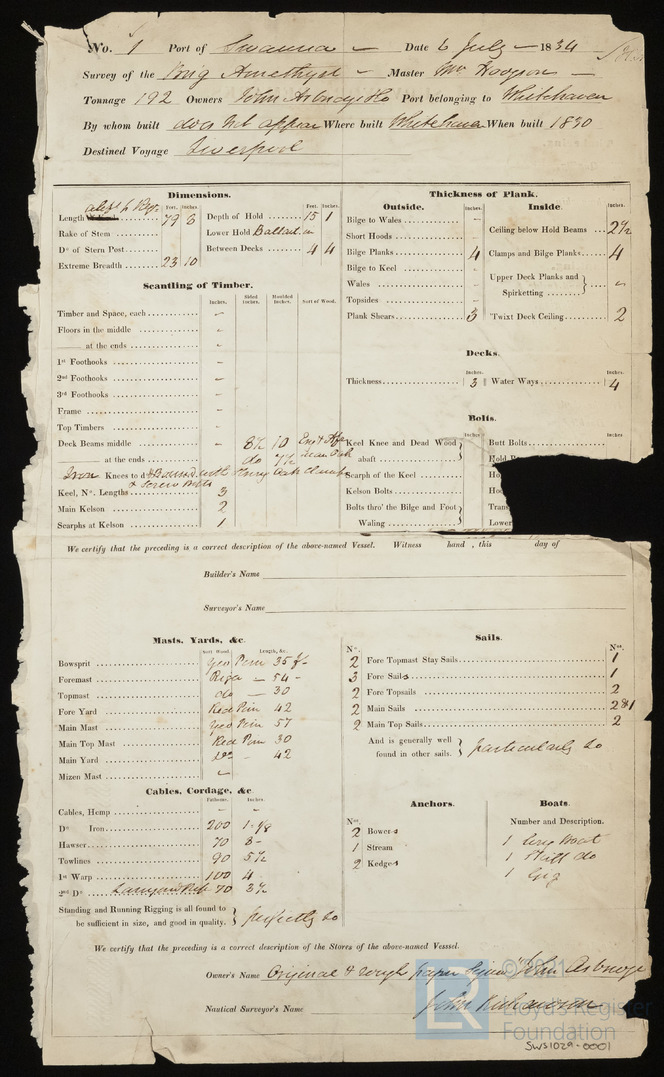 No. 1 Port of Swansea — Date 6 July — 1834 —
Survey of the Brig Amethyst — Master Wm Hodgson —
Tonnage 192 Owners John Asbridge & Co Port belonging to Whitehaven
By whom built does not appear Where built Whitehaven When built 1830
Destined Voyage Liverpool
Dimensions.
Feet. Inches.
Length 79 3
Rake of Stem
Do of Stern Post
Extreme Breadth 23 10
Feet. Inches.
Depth of Hold 15 1
Lower Hold Ballast in
Between Decks 4 4
Thickness of Plank.
Outside. Inches.
Bilge to Wales –
Short Hoods –
Bilge Planks 4
Bilge to Keel –
Wales –
Topsides –
Plank Shears 3
Inside. Inches.
Ceiling below Hold Beams 2½
Clamps and Bilge Planks 4
Upper Deck Planks and
Spirketting –
'Twixt Deck Ceiling 2
Scantling of Timber.
Inches. Sided Inches. Moulded Inches. Sort of Wood.
Timber and Space, each –
Floors in the middle –
—— at the ends –
1st Foothooks –
2nd Foothooks –
3rd Foothooks –
Frame –
Top Timbers –
Deck Beams middle – 8½ 10 Eng &
—— at the ends do 7½ Oak
Iron Knees to with Oak
& Screw Bolts
Keel, No. Lengths 3
Main Kelson 2
Scarphs at Kelson 1
Decks.
Inches. Inches.
Thickness 3 Water Ways 4
Bolts.
Inches. Inches
Keel Knee and Dead Wood
abaft
Scarph of the Keel
Kelson Bolts
Bolts thro' the Bilge and Foot
Waling
Butt Bolts
Hold
Tran
Lower
We certify that the preceding is a correct description of the above-named Vessel. Witness hand , this day of
Builder's Name
Surveyor's Name
Masts, Yards, &c.
Sort Wood. Length, &c.
Bowsprit Yeo Pine 35 ft
Foremast Riga — 54 –
Topmast do — 30
Fore Yard Red Pine 42
Main Mast Yeo Pine 57
Main Top Mast Red Pine 30
Main Yard do – 42
Mizen Mast –
Sails.
Nos. Nos.
2 Fore Topmast Stay Sails 1
3 Fore Sails 1
2 Fore Topsails 2
2 Main Sails 2 & 1
2 Main Top Sails 2
And is generally well
found in other sails. particularly so
Cables, Cordage, &c.
Fathoms. Inches.
Cables, Hemp – –
Do Iron 200 1-1/8
Hawser 70 8-
Towlines 90 5½
1st Warp 100 4
2nd Do 70 3½
Standing and Running Rigging is all found to
be sufficient in size, and good in quality. perfectly so
Anchors.
Nos.
2 Bowers
1 Stream
2 Kedges
Boats.
Number and Description.
1 Long Boat
1 Skiff do
1 Gig
We certify that the preceding is a correct description of the Stores of the above-named Vesssel.
Owner's Name Original & rough paper signed John Asbridge
Nautical Surveyor's Name John Richardson
© 2021
LR
Lloyd's Register
Foundation
SWS1029-0001